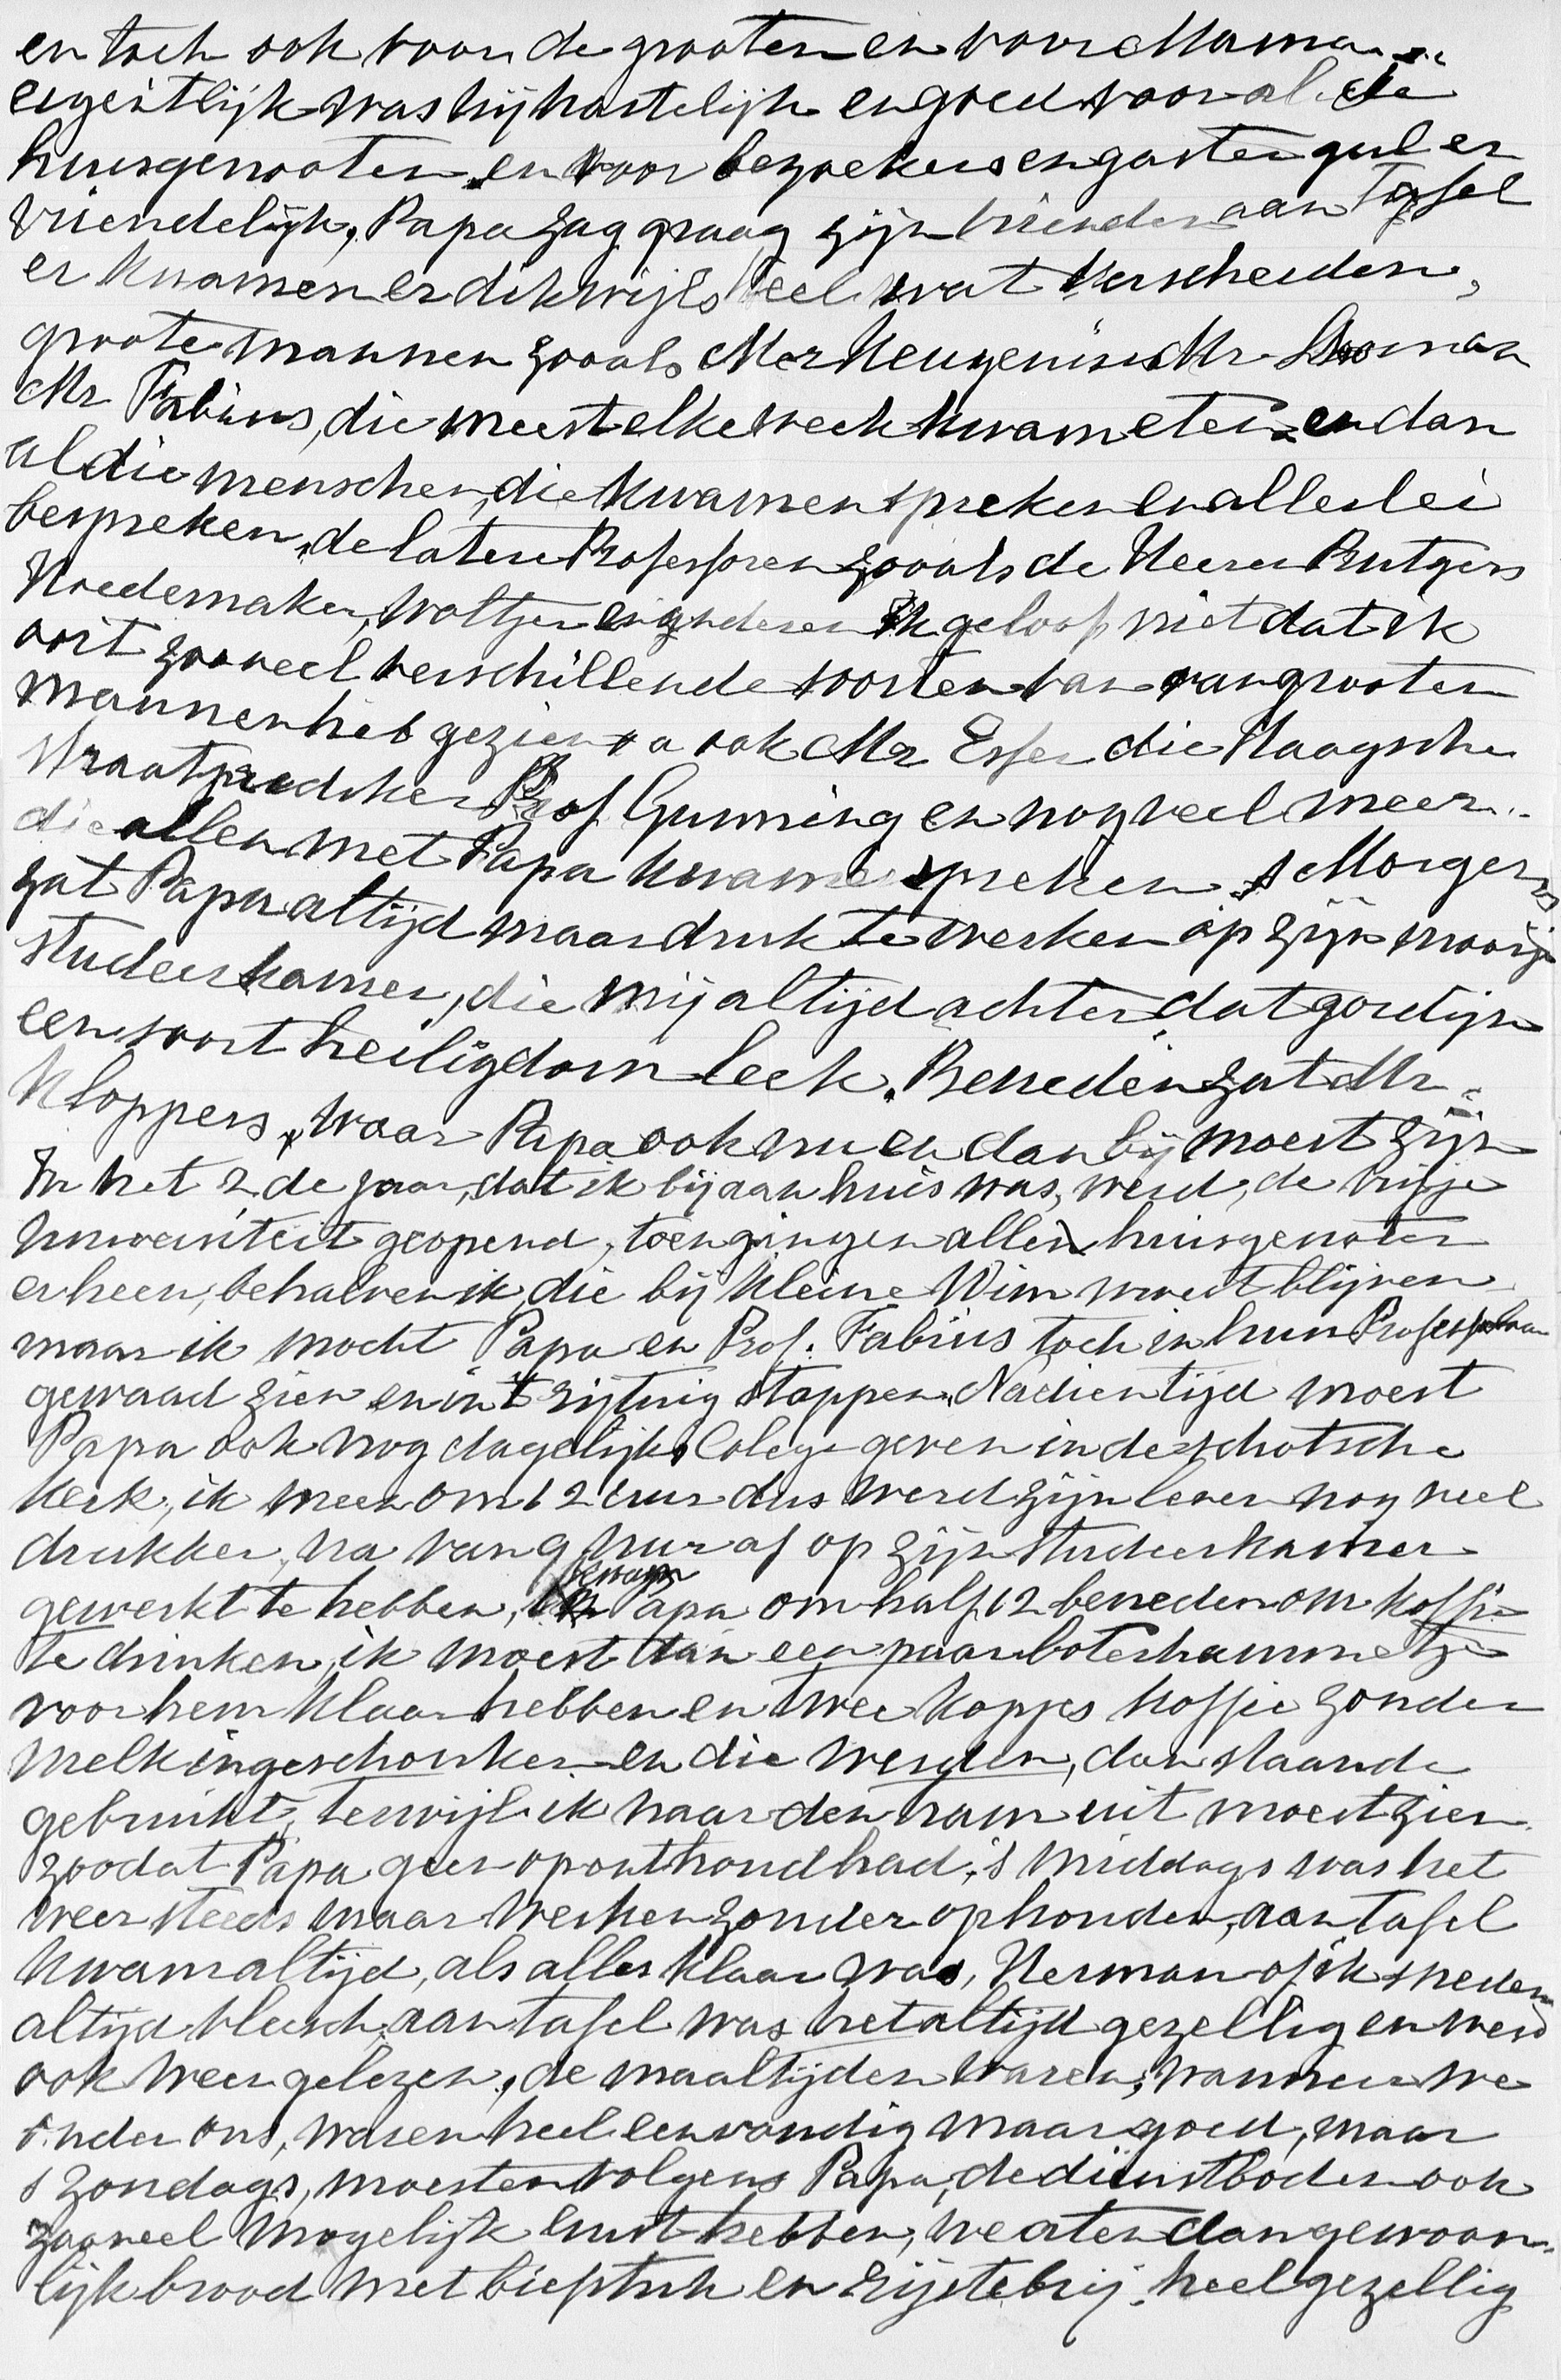 en toch ook voor de grooten en voor Mama...
eigentlijk was hij hartelijk en goed voor al de
huisgenooten, en voor bezoekers en gasten gul en
vriendelijk, Papa zag graag zijn vrienden aan tafel
er kwamen er dikwijls heel wat verscheiden,
groote mannen zooals Mr Heugenius Mr Looman
Mr Fabius, die meest elke week kwam eten, en dan
al die menschen, die kwamen spreken en allerlei
bespreken, de latere Professoren zooals de Heeren Rutgers
Hoedemaker, Woltjer en anderen Ik geloof niet dat ik
ooit zooveel verschillende soorten van van grooten
mannen heb gezien o a ook Mr Esser die Haagsche
straatprediker Prof Gunning en nog veel meer..
die allen met Papa kwamen spreken s Morgens
zat Papa altijd maar druk te werken op zijn mooije
studeerkamer, die mij altijd achter dat gordijn
een soort heiligdom leek. Beneden zat Mr.
Kloppers, waar Papa ook nu en dan bij moest zijn
In het 2de jaar, dat ik bij aan huis was, werd, de Vrije
Universiteit geopend, toen gingen allen huisgenoten
erheen, behalven ik, die bij kleine Wim moest blijven
maar ik mocht Papa en Prof. Fabius toch in hun Professoraan
gewaad zien en in 't rijtuig stappen. Nadien tijd moest
Papa ook nog dagelijks Colege geven in de schotsche
Kerk, ik meen om 12 uur dus werd zijn leven nog veel
drukker, na van 9 uur af op zijn studeerkamer
gewerkt te hebben, kwam Papa om half 12 beneden om koffie
te drinken, ik moest dan een paar boterhammetje
voor hem klaar hebben en twee kopjes koffie zonder
melk ingeschonken en die werden, dan staande
gebruikt, terwijl ik naar den tram uit moest zien
zoodat Papa geen oponthoud had, 's middags was het
weer steeds maar werken zonder ophouden, aan tafel
kwam altijd, als alles klaar was, Herman of ik sneden
altijd vleesch, aan tafel was het altijd gezellig en werd
ook weer gelezen, de maaltijden waren, wanneer we
onder ons, waren heel eenvoudig maar goed, maar
s Zondags, moesten volgens Papa, de dienstboden ook
zooveel mogelijk rust hebben, we aten dan gewoon-
lijk brood met biefstuk en rijstebrij, heel gezellig